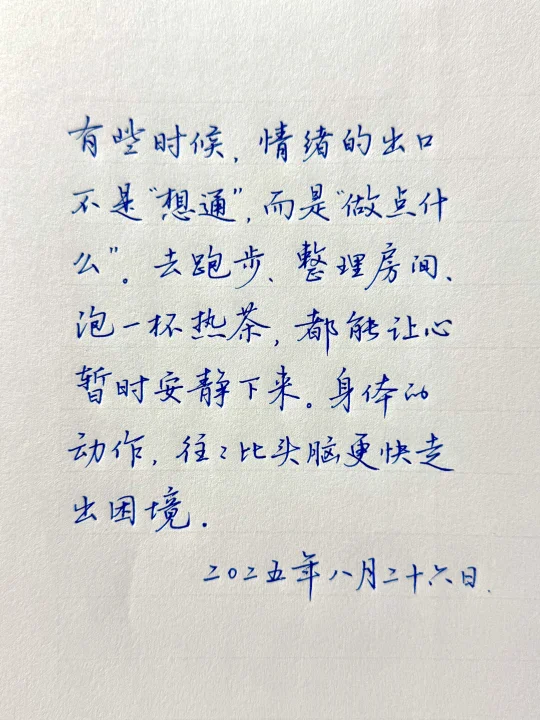 有些时候，情绪的出口
不是“想通”，而是“做点什
么”。去跑步、整理房间、
泡一杯热茶，都能让心
暂时安静下来。身体的
动作，往々比头脑更快走
出困境.
二〇二五年八月二十六日.